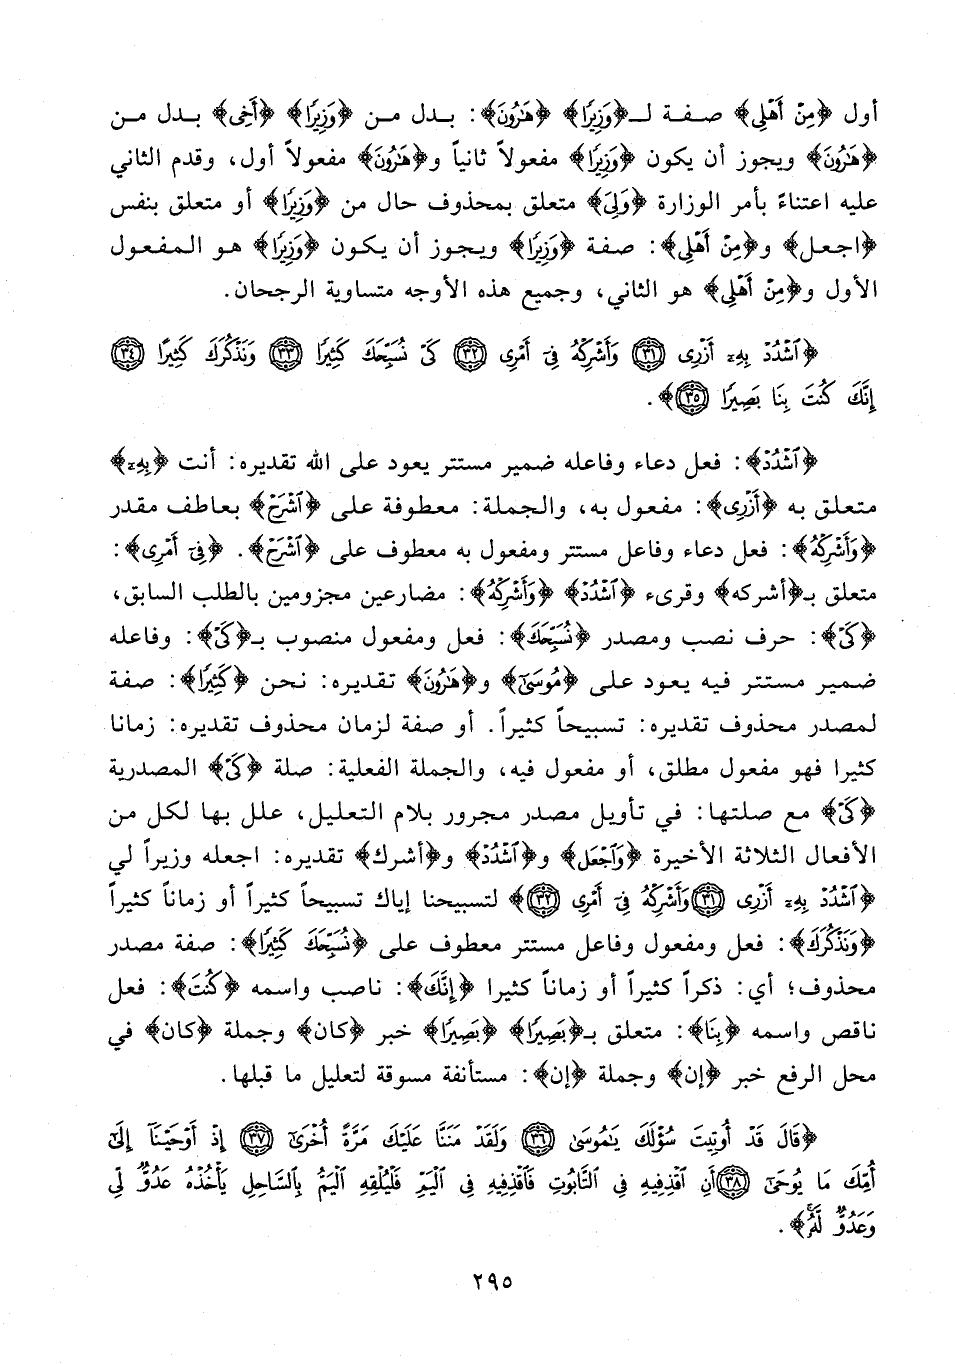 أول ﴿مِّنْ أَهْلِى﴾ صفة لـ﴿وَزِيرًا﴾ ﴿هَٰرُونَ﴾: بدل من ﴿وَزِيرًا﴾ ﴿أَخِى﴾ بدل من
﴿هَٰرُونَ﴾ ويجوز أن يكون ﴿وَزِيرًا﴾ مفعولاً ثانياً و﴿هَٰرُونَ﴾ مفعولاً أول، وقدم الثاني
عليه اعتناءً بأمر الوزارة ﴿وَلِىَ﴾ متعلق بمحذوف حال من ﴿وَزِيرًا﴾ أو متعلق بنفس
﴿اجعل﴾ و﴿مِّنْ أَهْلِى﴾: صفة ﴿وَزِيرًا﴾ ويجوز أن يكون ﴿وَزِيرًا﴾ هو المفعول
الأول و﴿مِّنْ أَهْلِى﴾ هو الثاني، وجميع هذه الأوجه متساوية الرجحان.
﴿ٱشْدُدْ بِهِۦٓ أَزْرِى ٣١ وَأَشْرِكْهُ فِىٓ أَمْرِى ٣٢ كَىْ نُسَبِّحَكَ كَثِيرًا ٣٣ وَنَذْكُرَكَ كَثِيرًا ٣٤
إِنَّكَ كُنتَ بِنَا بَصِيرًا ٣٥﴾.
﴿ٱشْدُدْ﴾: فعل دعاء وفاعله ضمير مستتر يعود على الله تقديره: أنت ﴿بِهِۦٓ﴾
متعلق به ﴿أَزْرِى﴾: مفعول به، والجملة: معطوفة على ﴿ٱشْرَحْ﴾ بعاطف مقدر
﴿وَأَشْرِكْهُ﴾: فعل دعاء وفاعل مستتر ومفعول به معطوف على ﴿ٱشْرَحْ﴾. ﴿فِىٓ أَمْرِى﴾:
متعلق بـ﴿أشركه﴾ وقرىء ﴿ٱشْدُدْ﴾ ﴿وَأَشْرِكْهُ﴾: مضارعين مجزومين بالطلب السابق،
﴿كَىْ﴾: حرف نصب ومصدر ﴿نُسَبِّحَكَ﴾: فعل ومفعول منصوب بـ﴿كَىْ﴾: وفاعله
ضمير مستتر فيه يعود على ﴿مُوسَىٰ﴾ و﴿هَٰرُونَ﴾ تقديره: نحن ﴿كَثِيرًا﴾: صفة
لمصدر محذوف تقديره: تسبيحاً كثيراً. أو صفة لزمان محذوف تقديره: زمانا
كثيرا فهو مفعول مطلق، أو مفعول فيه، والجملة الفعلية: صلة ﴿كَىْ﴾ المصدرية
﴿كَىْ﴾ مع صلتها: في تأويل مصدر مجرور بلام التعليل، علل بها لكل من
الأفعال الثلاثة الأخيرة ﴿وَٱجْعَل﴾ و﴿ٱشْدُدْ﴾ و﴿أشرك﴾ تقديره: اجعله وزيراً لي
﴿ٱشْدُدْ بِهِۦٓ أَزْرِى ٣١ وَأَشْرِكْهُ فِىٓ أَمْرِى ٣٢﴾ لتسبيحنا إياك تسبيحاً كثيراً أو زماناً كثيراً
﴿وَنَذْكُرَكَ﴾: فعل ومفعول وفاعل مستتر معطوف على ﴿نُسَبِّحَكَ كَثِيرًا﴾: صفة مصدر
محذوف؛ أي: ذكراً كثيراً أو زماناً كثيرا ﴿إِنَّكَ﴾: ناصب واسمه ﴿كُنتَ﴾: فعل
ناقص واسمه ﴿بِنَا﴾: متعلق بـ﴿بَصِيرًا﴾ ﴿بَصِيرًا﴾ خبر ﴿كان﴾ وجملة ﴿كان﴾ في
محل الرفع خبر ﴿إن﴾ وجملة ﴿إن﴾: مستأنفة مسوقة لتعليل ما قبلها.
﴿قَالَ قَدْ أُوتِيتَ سُؤْلَكَ يَٰمُوسَىٰ ٣٦ وَلَقَدْ مَنَنَّا عَلَيْكَ مَرَّةً أُخْرَىٰٓ ٣٧ إِذْ أَوْحَيْنَآ إِلَىٰٓ
أُمِّكَ مَا يُوحَىٰٓ ٣٨ أَنِ ٱقْذِفِيهِ فِى ٱلتَّابُوتِ فَٱقْذِفِيهِ فِى ٱلْيَمِّ فَلْيُلْقِهِ ٱلْيَمُّ بِٱلسَّاحِلِ يَأْخُذْهُ عَدُوٌّ لِّى
وَعَدُوٌّ لَّهُۥ﴾.
٢٩٥